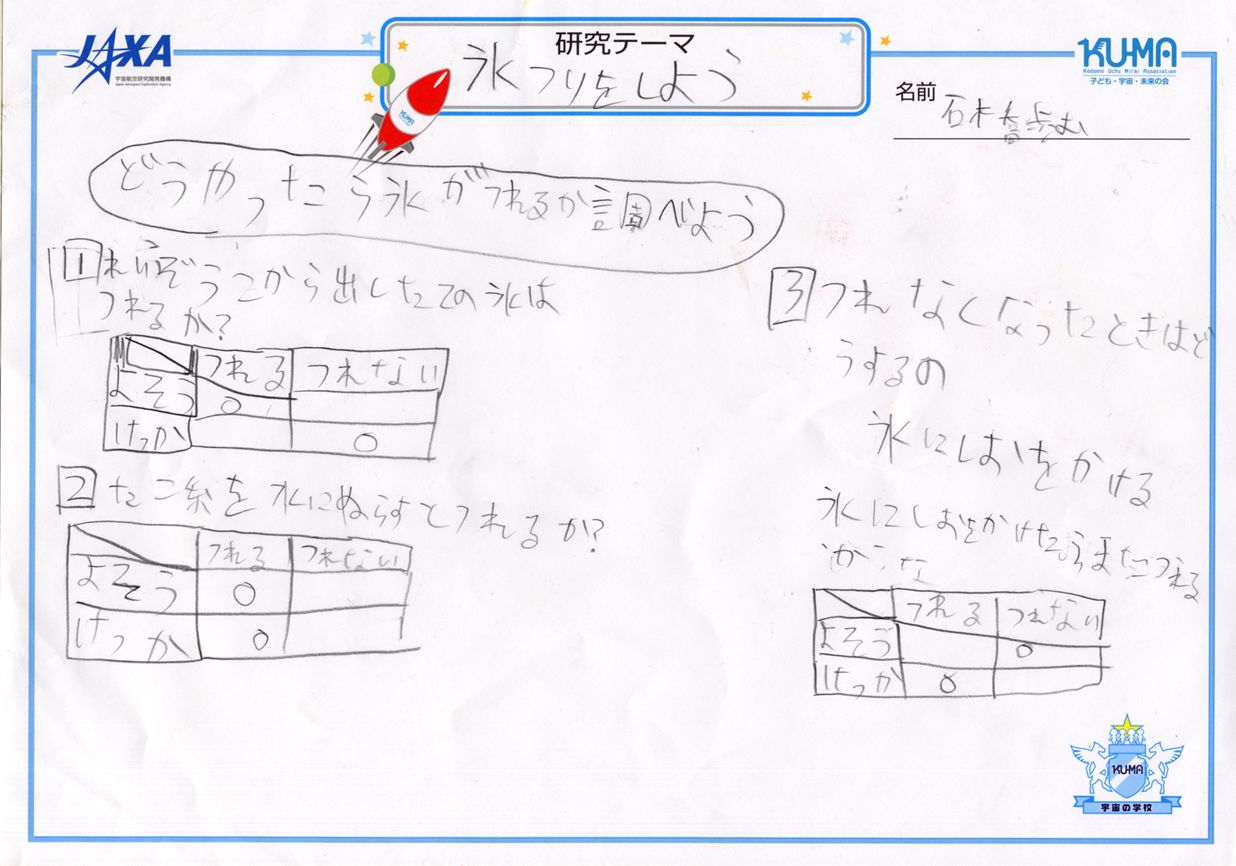 JAXA
宇宙航空研究開発機構
Japan Aerospace Exploration Agency
研究テーマ
氷つりをしよう
KU-MA
Kodomo Uchu Mirai Association
子ども・宇宙・未来の会
名前
KUMA
どうやったら氷がつれるか調べよう
1 れいぞうこから出したての氷は
つれるか?
つれる つれない
よそう ○
けっか ○
2 たこ糸を水にぬらすとつれるか?
つれる つれない
よそう ○
けっか ○
3 つれなくなったときはど
うするの
氷にしおをかける
氷にしおをかけたらまたつれる
かな
つれる つれない
よそう ○
けっか ○
KUMA
宇宙の学校